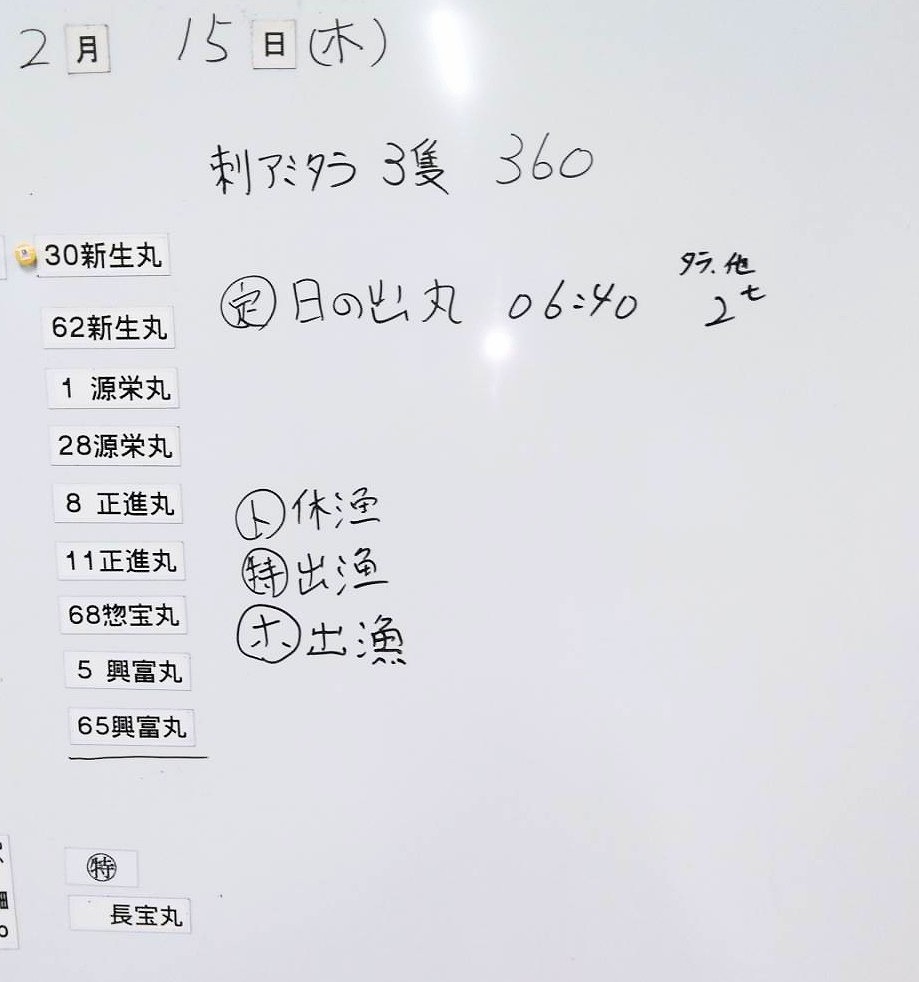 2月 15日(木)
刺アミタラ 3隻 360
30新生丸
62新生丸
1 源栄丸
28源栄丸
8 正進丸
11正進丸
68惣宝丸
5 興富丸
65興富丸
㊢ 日の出丸 06:40 タラ.他 2t